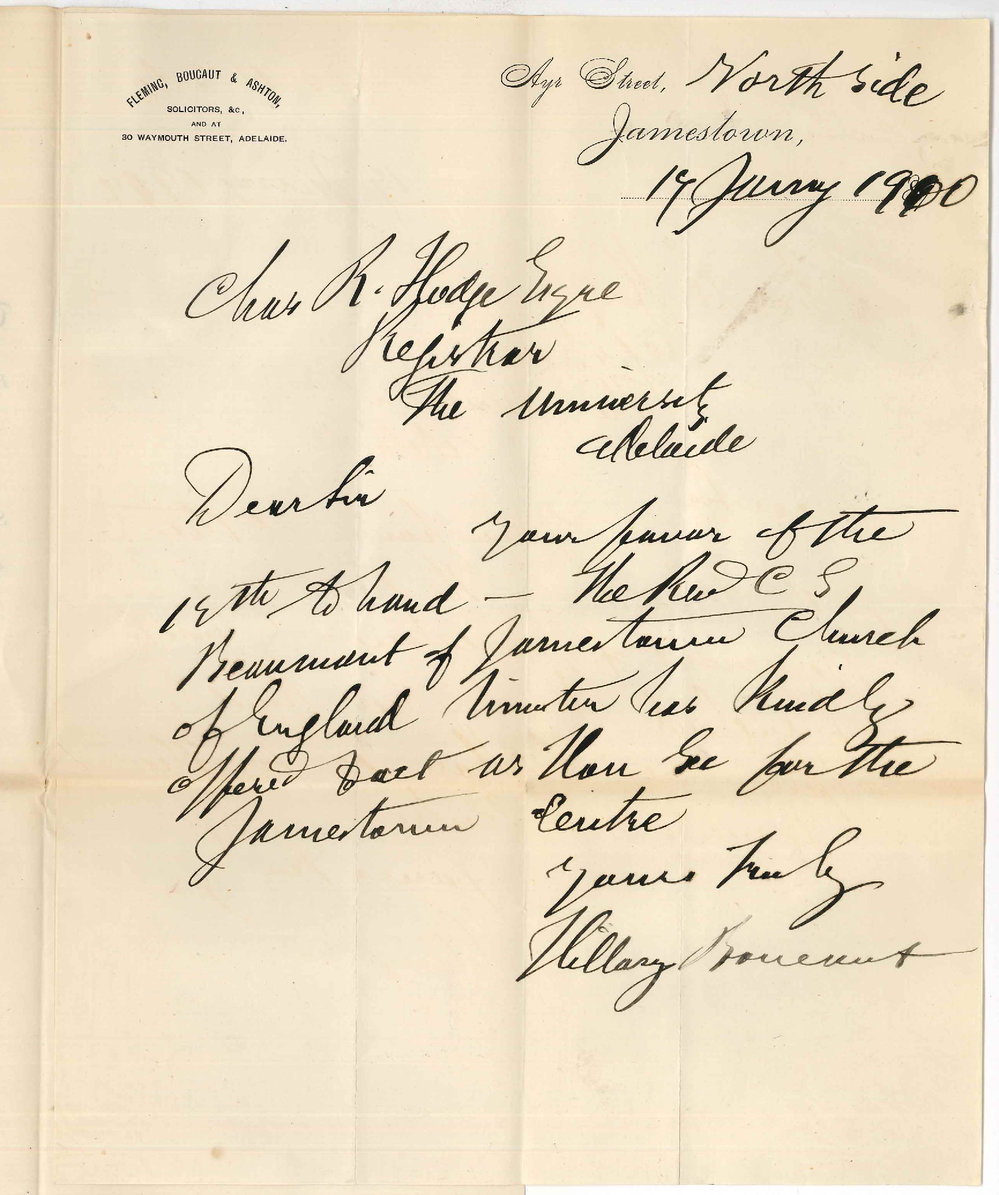 FLEMING, BOUCAUT & ASHTON,
SOLICITORS, &c,
AND AT
30 WAYMOUTH STREET, ADELAIDE.
Ayr Street, North Side
Jamestown,
Janry 1900
Chas R. Hodge Esqre
Registrar
The University
Adelaide
Dear Sir
Your favor of the
to hand — The Revd C G
Beaumont of Jamestown Church
of England Minister has kindly
offered to act as Hon Sec for the
Jamestown Centre
Yours truly
Hillary Boucaut